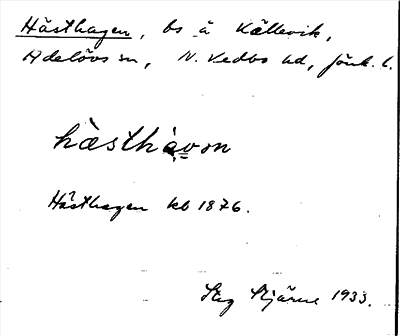 Hästhagen, bs å Källevik,
Adelövs sn, N. Vedbo hd, Jönk. l.
hàsthàvơn
Hästhagen kb 1876.
Stig Stjärne 1933.